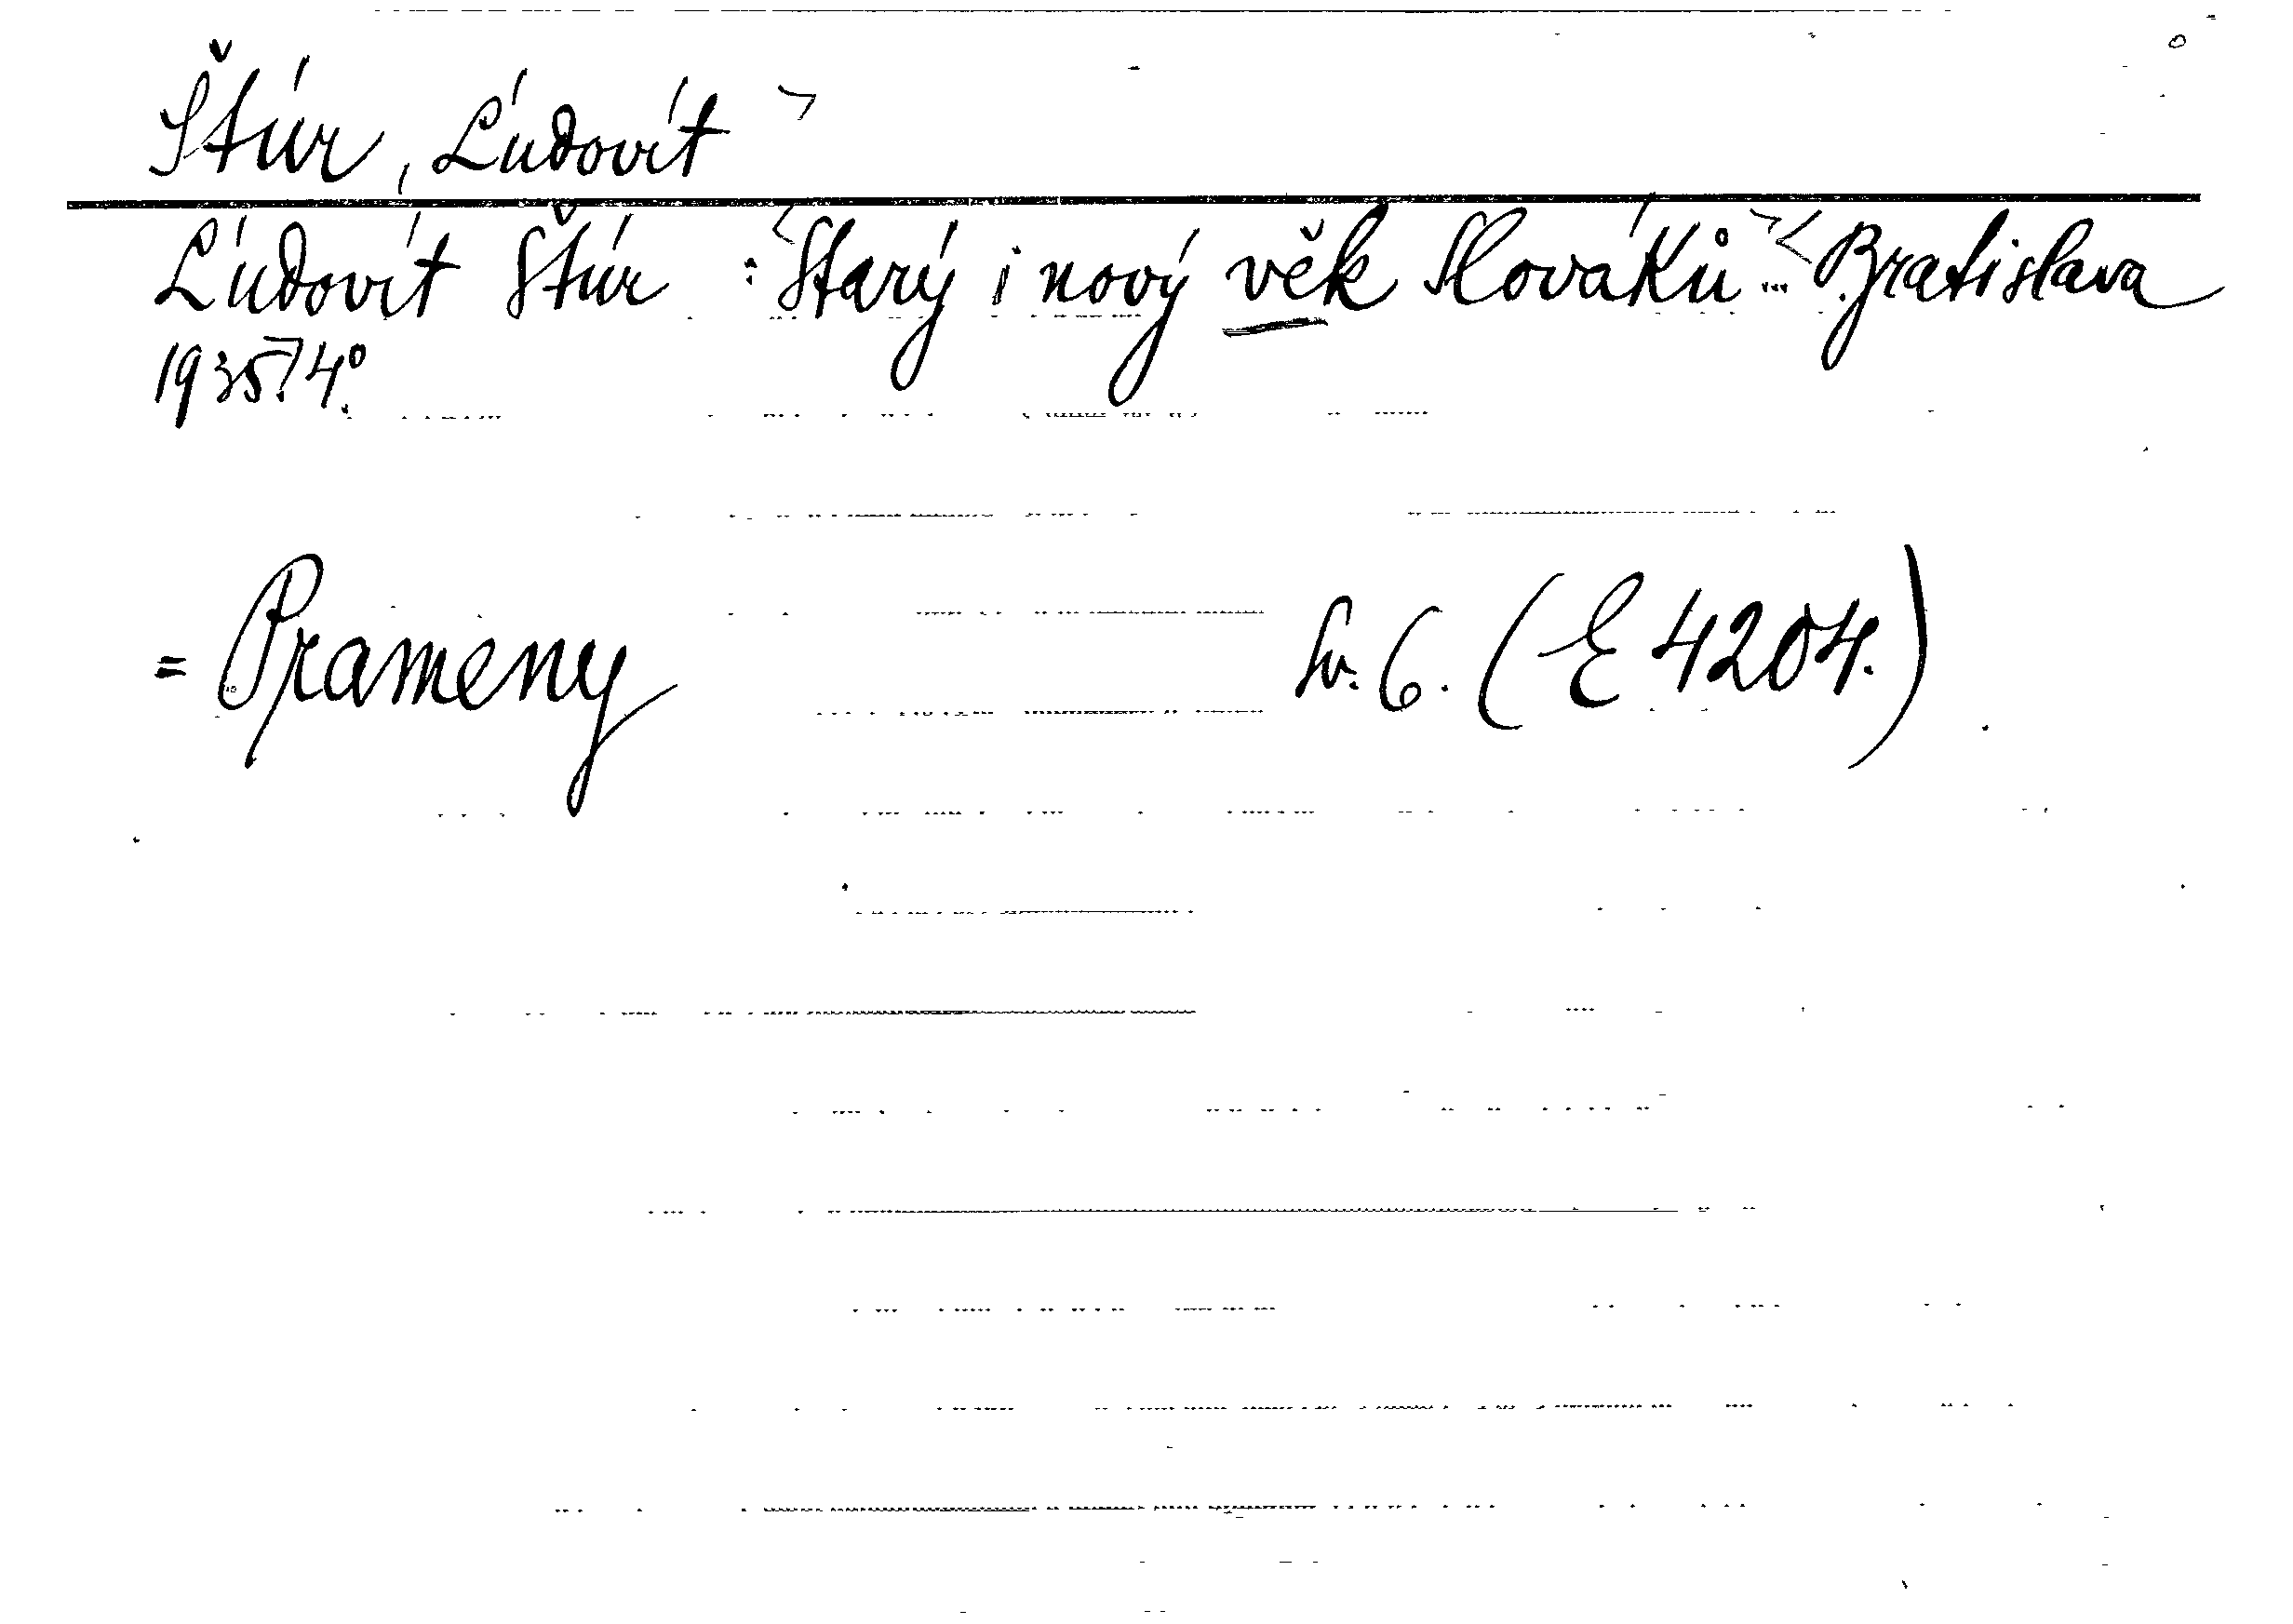 Štúr, Ľudovít
Ľudovít Štúr : Starý i nový věk Slováků... Bratislava
1935. 4°.
= Prameny Sv. 6. (E 4204.)